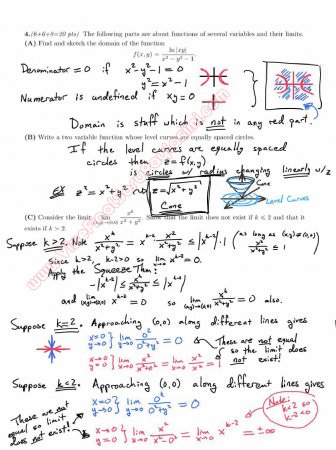 4.(6+6+8=20 pts) The following parts are about functions of several variables and their limits.
(A) Find and sketch the domain of the function
f(x,y) = ln|xy| / x²−y²−1
Denominator = 0 if x²−y²−1 = 0
y² = x²−1
Numerator is undefined if xy = 0
Domain is stuff which is not in any red part.
(B) Write a two variable function whose level curves are equally spaced circles.
If the level curves are equally spaced
circles then z = f(x,y)
is circles w/ radius changing linearly w/ z
Ex z² = x²+y² so z = √x²+y²
Cone
Cone
Level Curves
(C) Consider the limit lim (x,y)→(0,0) x^k / x²+y². Show that the limit does not exist if k ≤ 2 and that it
exists if k > 2.
Suppose k>2. Note x^k / x²+y² = x^k−2 x² / x²+y² ≤ |x^k−2|·1 (as long as (x,y)≠(0,0))
Since k>2, k−2>0 so lim x→0 x^k−2 = 0.
Apply the Squeeze Thm:
−|x^k−2| ≤ x^k / x²+y² ≤ |x^k−2|
and lim (x,y)→(0,0) |x^k−2| = 0 so lim (x,y)→(0,0) x^k / x²+y² = 0 also.
Suppose k=2. Approaching (0,0) along different lines gives
x=0 y→0 } lim y→0 0² / 0²+y² = 0
These are not equal
so the limit does
not exist!
x→0 y=0 } lim x→0 x² / x²+0² = lim x→0 x² / x² = 1
Suppose k<2. Approaching (0,0) along different lines gives
These are not
equal so limit
does not exist!
x=0 y→0 } lim y→0 0^k / 0²+y² = 0
x→0 y=0 } lim x→0 x^k / x²+0² = lim x→0 x^k−2 = ±∞
Note:
k<2 so
k−2<0